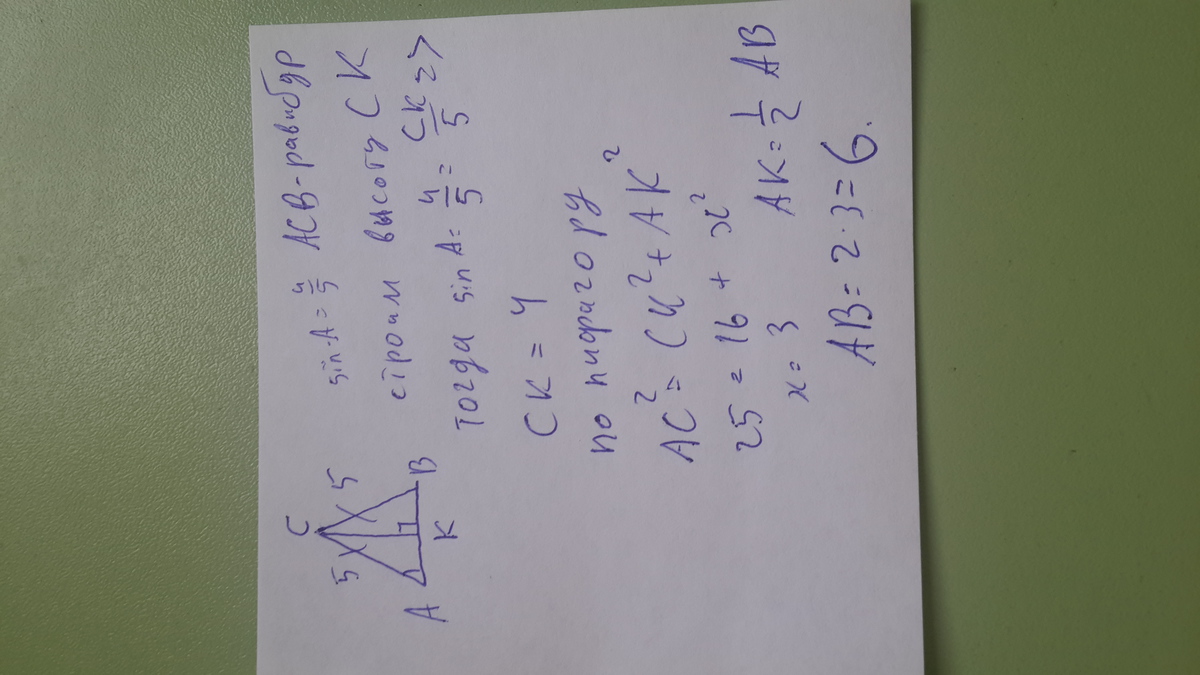 C
5 5
A K B
sin A = 4/5 ACB - равнбдр
строим высоту CK
Тогда sin A = 4/5 = CK/5 =>
CK = 4
по пифагору
AC² = CK² + AK²
25 = 16 + x²
x = 3 AK = 1/2 AB
AB = 2 · 3 = 6.